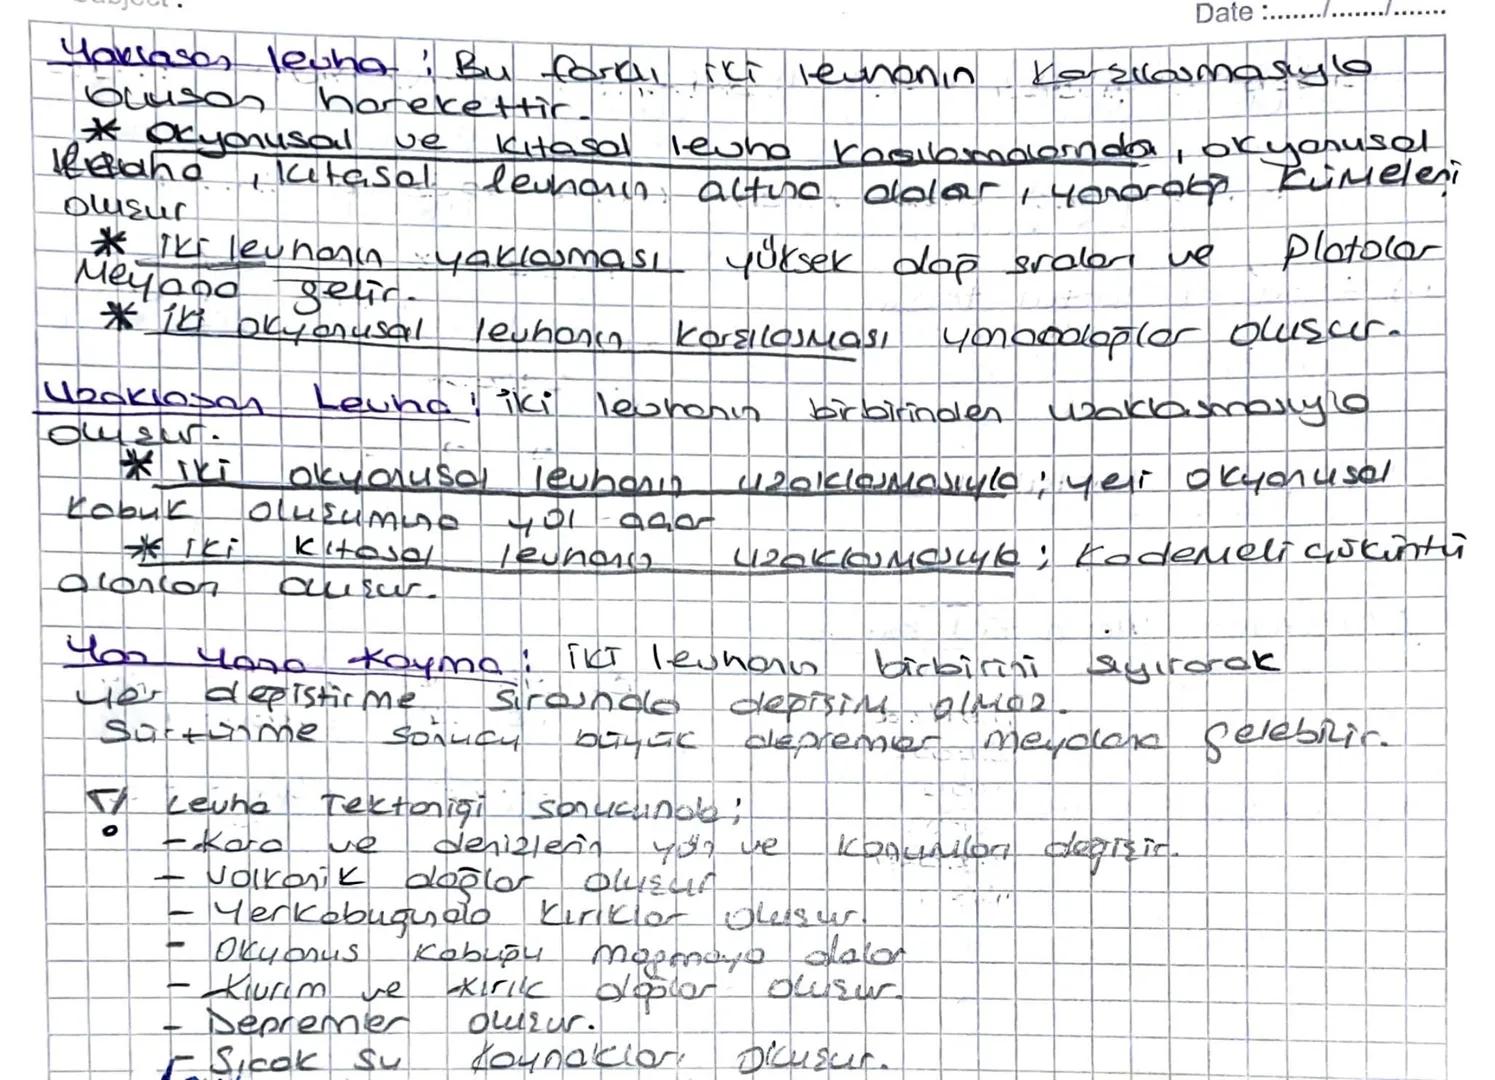 Date :......./......./.......
Yaklaşan levha : Bu farklı iki levhanın karşılaşmasıyla
oluşan harekettir.
* Okyanusal ve kıtasal levha karşılaşmalarında, okyanusal
levha, kıtasal levhanın altına dalar, yanardağ kümeleri
oluşur
* iki levhanın yaklaşması yüksek dağ sıraları ve platolar
meydana gelir.
* iki okyanusal levhanın karşılaşması yanardağlar oluşur.
Uzaklaşan Levha ; iki levhanın birbirinden uzaklaşmasıyla
oluşur.
* iki okyanusal levhanın uzaklaşmasıyla ; yeni okyanusal
kabuk oluşumuna yol açar
* iki kıtasal levhanın uzaklaşmasıyla ; kademeli çöküntü
alanları oluşur.
Yan yana kayma : iki levhanın birbirini sıyırarak
yer değiştirme sırasında değişim olmaz.
Sürtünme sonucu büyük depremler meydana gelebilir.
! Levha Tektoniği sonucunda ;
- Kara ve denizlerin yön ve konumları değişir.
- Volkanik dağlar oluşur
- Yerkabuğunda kırıklar oluşur.
- Okyanus kabuğu magmaya dalar
- Kıvrım ve kırık dağlar oluşur.
- Depremler oluşur.
- Sıcak su kaynakları oluşur.